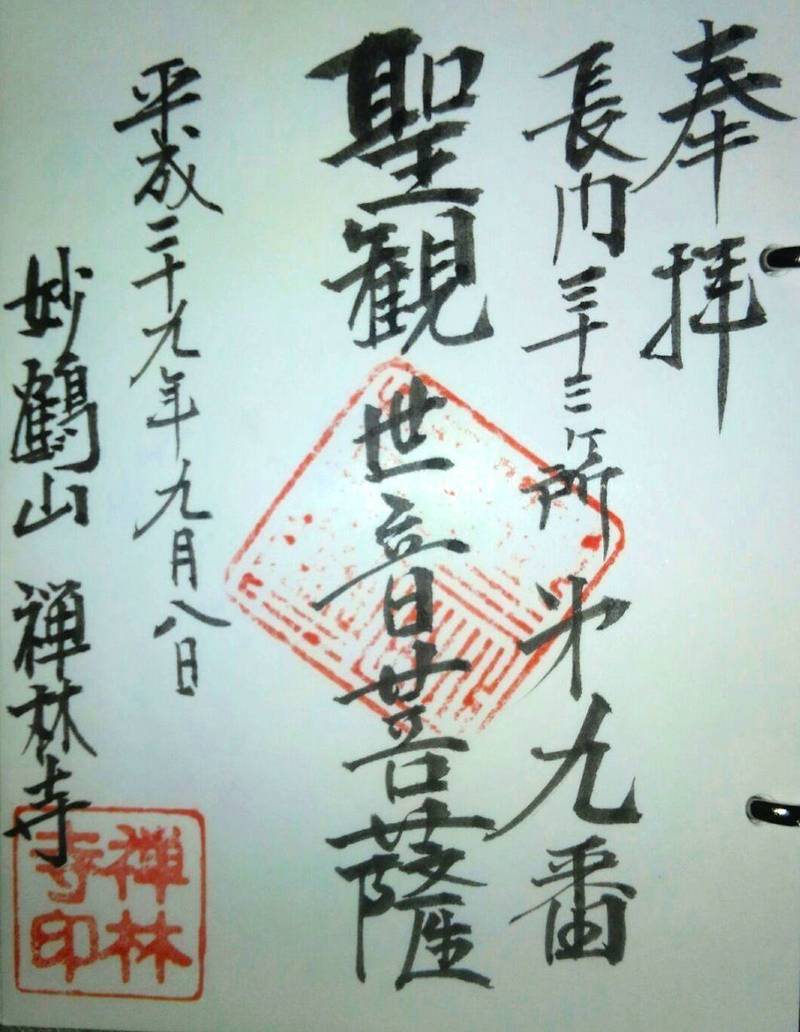 奉拝
長内三十三ヶ所 第九番
聖観世音菩薩
平成二十九年九月八日
妙鶴山 禅林寺
禅林
寺印